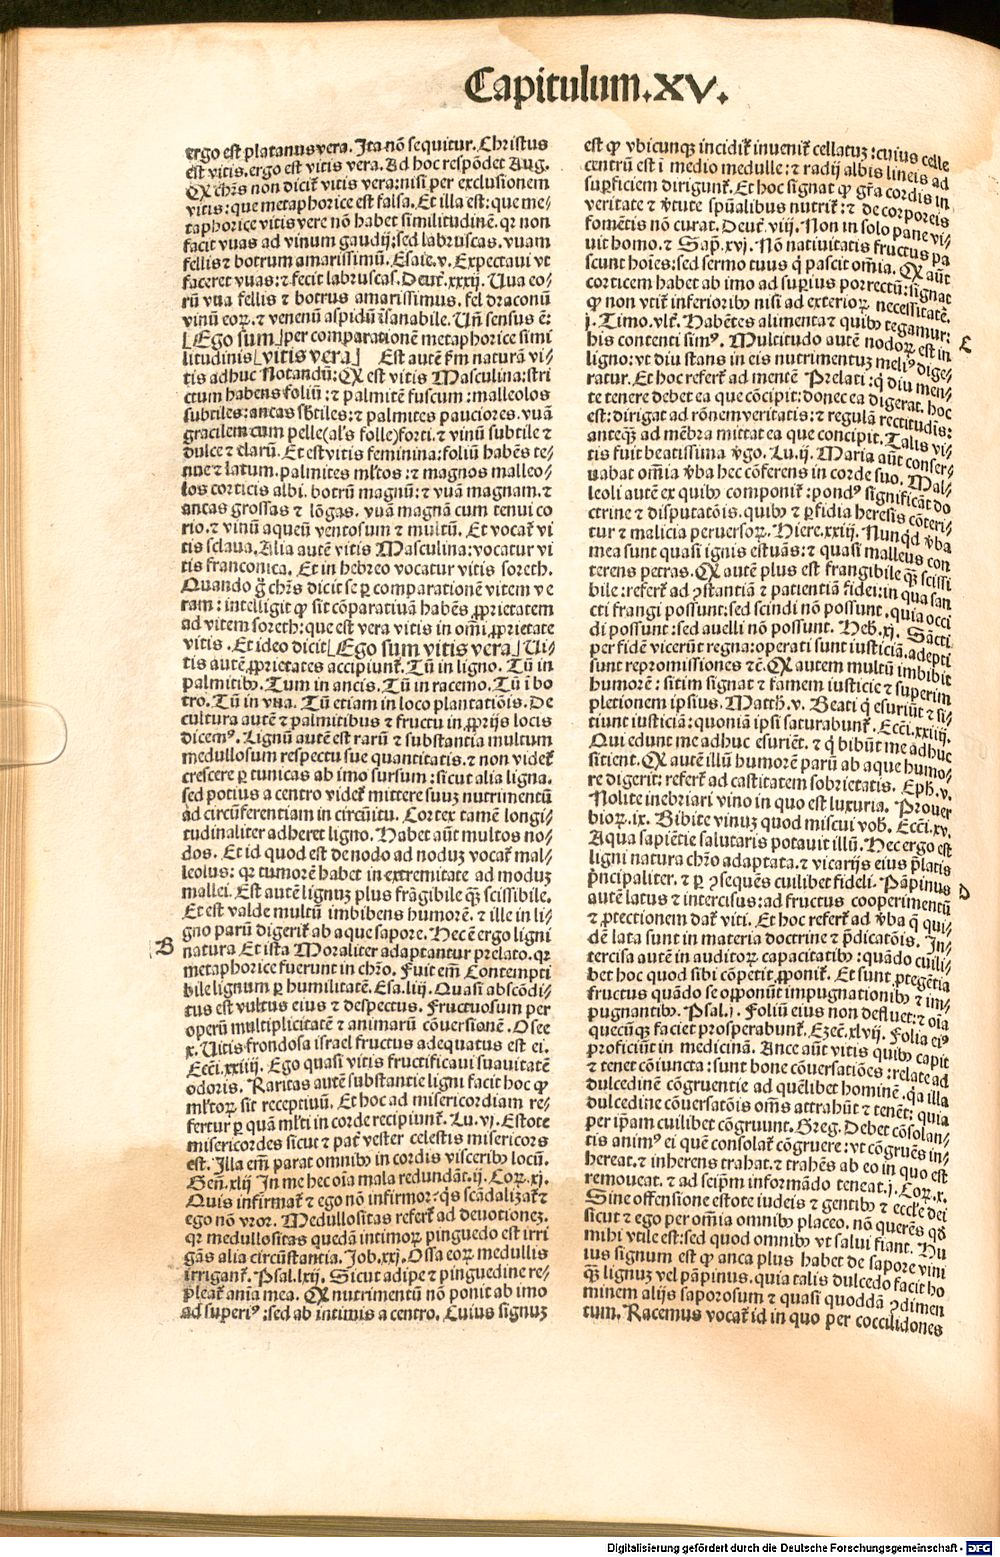 Capitulum.XV.
ergo est platanus vera. Ita nō sequitur. Christus
est vitis. ergo est vitis vera. Ad hoc respōdet Aug.
Qꝫ chr̄s non dicit᷑ vitis vera: nisi per exclusionem
vitis: que metaphorice est falsa. Et illa est: que me-
taphorice vitis vere nō habet similitudinē. qꝛ non
facit vuas ad vinum gaudij: sed labruscas. vuam
fellis ⁊ botrum amarissimū. Esaie. v. Expectaui vt
faceret vuas: ⁊ fecit labruscas. Deut᷑. xxxij. Uua eo-
rū vua fellis ⁊ botrus amarissimus. fel draconū
vinū eoꝝ. ⁊ venenū aspidū īsanabile. Un̄ sensus ē:
[Ego sum] per comparationē metaphorice simi
litudinis [vitis vera] Est autē fm naturā vi-
tis adhuc Notandū: Qꝫ est vitis Masculina: stri
ctum habens foliū: ⁊ palmitē fuscum: malleolos
subtiles: ancas sb̄tiles: ⁊ palmites pauciores. vuā
gracilem cum pelle (al's folle) forti. ⁊ vinū subtile ⁊
dulce ⁊ clarū. Et est vitis feminina: foliū habēs te-
nue ⁊ latum. palmites ml̄tos: ⁊ magnos malleo-
los corticis albi. botrū magnū: ⁊ vuā magnam. ⁊
ancas grossas ⁊ lōgas. vuā magnā cum tenui co
rio. ⁊ vinū aqueū ventosum ⁊ multū. Et vocat᷑ vi
tis sclaua. Alia autē vitis Masculina: vocatur vi
tis franconica. Et in hebreo vocatur vitis soreth.
Quando g̊ chr̄s dicit se ꝑ comparationē vitem ve
ram: intelligit ꝙ sit cōparatiuā habēs ꝓprietatem
ad vitem soreth: que est vera vitis in om̄i ꝓprietate
vitis. Et ideo dicit [Ego sum vitis vera] Ui-
tis autē ꝓprietates accipiunt᷑. Tū in ligno. Tū in
palmitibꝰ. Tum in ancis. Tū in racemo. Tū ī bo
tro. Tū in vua. Tū etiam in loco plantatiōis. De
cultura autē ⁊ palmitibus ⁊ fructu in ꝓprijs locis
dicemꝰ. Lignū autē est rarū ⁊ substantia multum
medullosum respectu sue quantitatis. ⁊ non videt᷑
crescere ꝑ tunicas ab imo sursum: sicut alia ligna.
sed potius a centro videt᷑ mittere suuꝫ nutrimentū
ad circūferentiam in circūitu. Cortex tamē longi-
tudinaliter adheret ligno. Habet aūt multos no-
dos. Et id quod est de nodo ad noduꝫ vocat᷑ mal-
leolus: qꝛ tumorē habet in extremitate ad moduꝫ
mallei. Est autē lignuꝫ plus frāgibile qꝫ̄ scissibile.
Et est valde multū imbibens humorē. ⁊ ille in li-
gno parū digerit᷑ ab aque sapore. Hec ē ergo ligni
B
natura Et ista Moraliter adaptantur prelato. qꝛ
metaphorice fuerunt in chr̄o. Fuit em̄ Contempti
bile lignum ꝑ humilitatē. Esa. liij. Quasi abscōdi-
tus est vultus eius ⁊ despectus. Fructuosum per
operū multiplicitatē ⁊ animarū cōuersionē. Osee
x. Uitis frondosa israel fructus adequatus est ei.
Ecci. xxiiij. Ego quasi vitis fructificaui suauitatē
odoris. Raritas autē substantie ligni facit hoc ꝙ
ml̄toꝝ sit receptiuū. Et hoc ad misericordiam re-
fertur ꝑ quā ml̄ti in corde recipiunt᷑. Lu. vj. Estote
misericordes sicut ⁊ pat᷑ vester celestis misericors
est. Illa em̄ parat omnibꝰ in cordis visceribꝰ locū.
Gen̄. xlij In me hec oia mala redundāt. ij. Coꝝ. xj.
Quis infirmat᷑ ⁊ ego nō infirmor: q̇s scādalizat᷑ ⁊
ego nō vror. Medullositas refert᷑ ad deuotioneꝫ.
qꝛ medullositas quedā intimoꝝ pinguedo est irri
gās alia circūstantia. Job. xxj. Ossa eoꝝ medullis
irrigant᷑. Psal. lxij. Sicut adipe ⁊ pinguedine re-
pleat᷑ ania mea. Qꝫ nutrimentū nō ponit ab imo
ad superiꝰ: sed ab intimis a centro. Cuius signuꝫ
est ꝙ vbicunqꝫ incidit᷑ inuenit᷑ cellatuꝫ: cuius celle
centrū est ī medio medulle: ⁊ radij albis lineis ad
suꝑficiem dirigunt᷑. Et hoc signat ꝙ gr̄a cordis in
veritate ⁊ v̄tute spūalibus nutrit᷑: ⁊ de corporeis
fomētis nō curat. Deut᷑. viij. Non in solo pane vi-
uit homo. ⁊ Sap̄. xvj. Nō natiuitatis fructus pa
scunt hoīes: sed sermo tuus q̇ pascit om̄ia. Qꝫ aūt
corticem habet ab imo ad suꝑius porrectū: signat
ꝙ non vtit᷑ inferioribꝰ nisi ad exterioꝝ necessitatē.
j. Timo. vlt᷑. Habētes alimenta ⁊ quibꝰ tegamur:
C
his contenti simꝰ. Multitudo autē nodoꝝ est in
ligno: vt diu stans in eis nutrimentuꝫ meliꝰ dige-
ratur. Et hoc refert᷑ ad mentē Prelati: q̇ diu men-
te tenere debet ea que cōcipit: donec ea digerat. hoc
est: dirigat ad rōnem veritatis: ⁊ regulā rectitudīs:
anteqꝫ̄ ad mēbra mittat ea que concipit. Talis vi-
tis fuit beatissima v̄go. Lu. ij. Maria aūt conser-
uabat om̄ia v̄ba hec cōferens in corde suo. Mal-
leoli autē ex quibꝰ componit᷑: pondꝰ significāt do
ctrine ⁊ disputatōis. quibꝰ ⁊ ꝑfidia heresis cōteri-
tur ⁊ malicia peruersoꝝ. Hiere. xxiij. Nunqd̄ v̄ba
mea sunt quasi ignis estuās: ⁊ quasi malleus con
terens petras. Qꝫ autē plus est frangibile qꝫ̄ scissi
bile: refert᷑ ad ꝯstantiā ⁊ patientiā fidei: in qua san
cti frangi possunt: sed scindi nō possunt. quia occi
di possunt: sed auelli nō possunt. Heb̄. xj. Sancti
per fidē vicerūt regna: operati sunt iusticiā. adepti
sunt repromissiones ⁊c̄. Qꝫ autem multū imbibit
humorē: sitim signat ⁊ famem iusticie ⁊ superim
pletionem ipsius. Matth. v. Beati q̇ esuriūt ⁊ si-
tiunt iusticiā: quoniā ipsi saturabunt᷑. Ecci. xxiiij.
Qui edunt me adhuc esuriēt. ⁊ q̇ bibūt me adhuc
sitient. Qꝫ autē illū humorē parū ab aque humo-
re digerit: refert᷑ ad castitatem sobrietatis. Eph. v.
Nolite inebriari vino in quo est luxuria. Prouer
bioꝝ. ix. Bibite vinuꝫ quod miscui vob̄. Ecci. xv.
Aqua sapiētie salutaris potauit illū. Hec ergo est
ligni natura chr̄o adaptata. ⁊ vicarijs eius p̄latis
p̄ncipaliter. ⁊ ꝑ ꝯsequēs cuilibet fideli. Pāpinus
D
autē latus ⁊ intercisus: ad fructus cooperimentū
⁊ ꝓtectionem dat᷑ viti. Et hoc refert᷑ ad v̄ba q̄ qui-
dē lata sunt in materia doctrine ⁊ p̄dicatōis. In-
tercisa autē in auditoꝝ capacitatibꝰ: quādo cuili-
bet hoc quod sibi cōpetit ꝓponit᷑. Et sunt ꝓtegētia
fructus quādo se opponūt impugnationibꝰ ⁊ im-
pugnantibꝰ. Psal. j. Foliū eius non defluet: ⁊ oīa
quecūqꝫ faciet prosperabunt᷑. Ezec̄. xlvij. Folia eiꝰ
proficiūt in medicinā. Ance aūt vitis quibꝰ capit
⁊ tenet cōiuncta: sunt bone cōuersatiōes: relate ad
dulcedinē cōgruentie ad quēlibet hominē. q̇a illa
dulcedine cōuersatōis om̄s attrahūt ⁊ tenēt: quia
per ip̄am cuilibet cōgruunt. Greg. Debet cōsolan-
tis animꝰ ei quē consolat᷑ cōgruere: vt cōgruēs in-
hereat. ⁊ inherens trahat. ⁊ trahēs ab eo in quo est
remoueat. ⁊ ad seip̄m informādo teneat. j. Coꝝ. x.
Sine offensione estote iudeis ⁊ gentibꝰ ⁊ eccl̄e dei
sicut ⁊ ego per om̄ia omnibꝰ placeo. nō querēs qd̄
mihi vtile est: sed quod omnibꝰ vt salui fiant. Hu
ius signum est ꝙ anca plus habet de sapore vini
qꝫ̄ lignuꝫ vel pāpinus. quia talis dulcedo facit ho
minem alijs saporosum ⁊ quasi quoddā ꝯdimen
tum. Racemus vocat᷑ id in quo per coccilidones
Digitalisierung gefördert durch die Deutsche Forschungsgemeinschaft - DFG